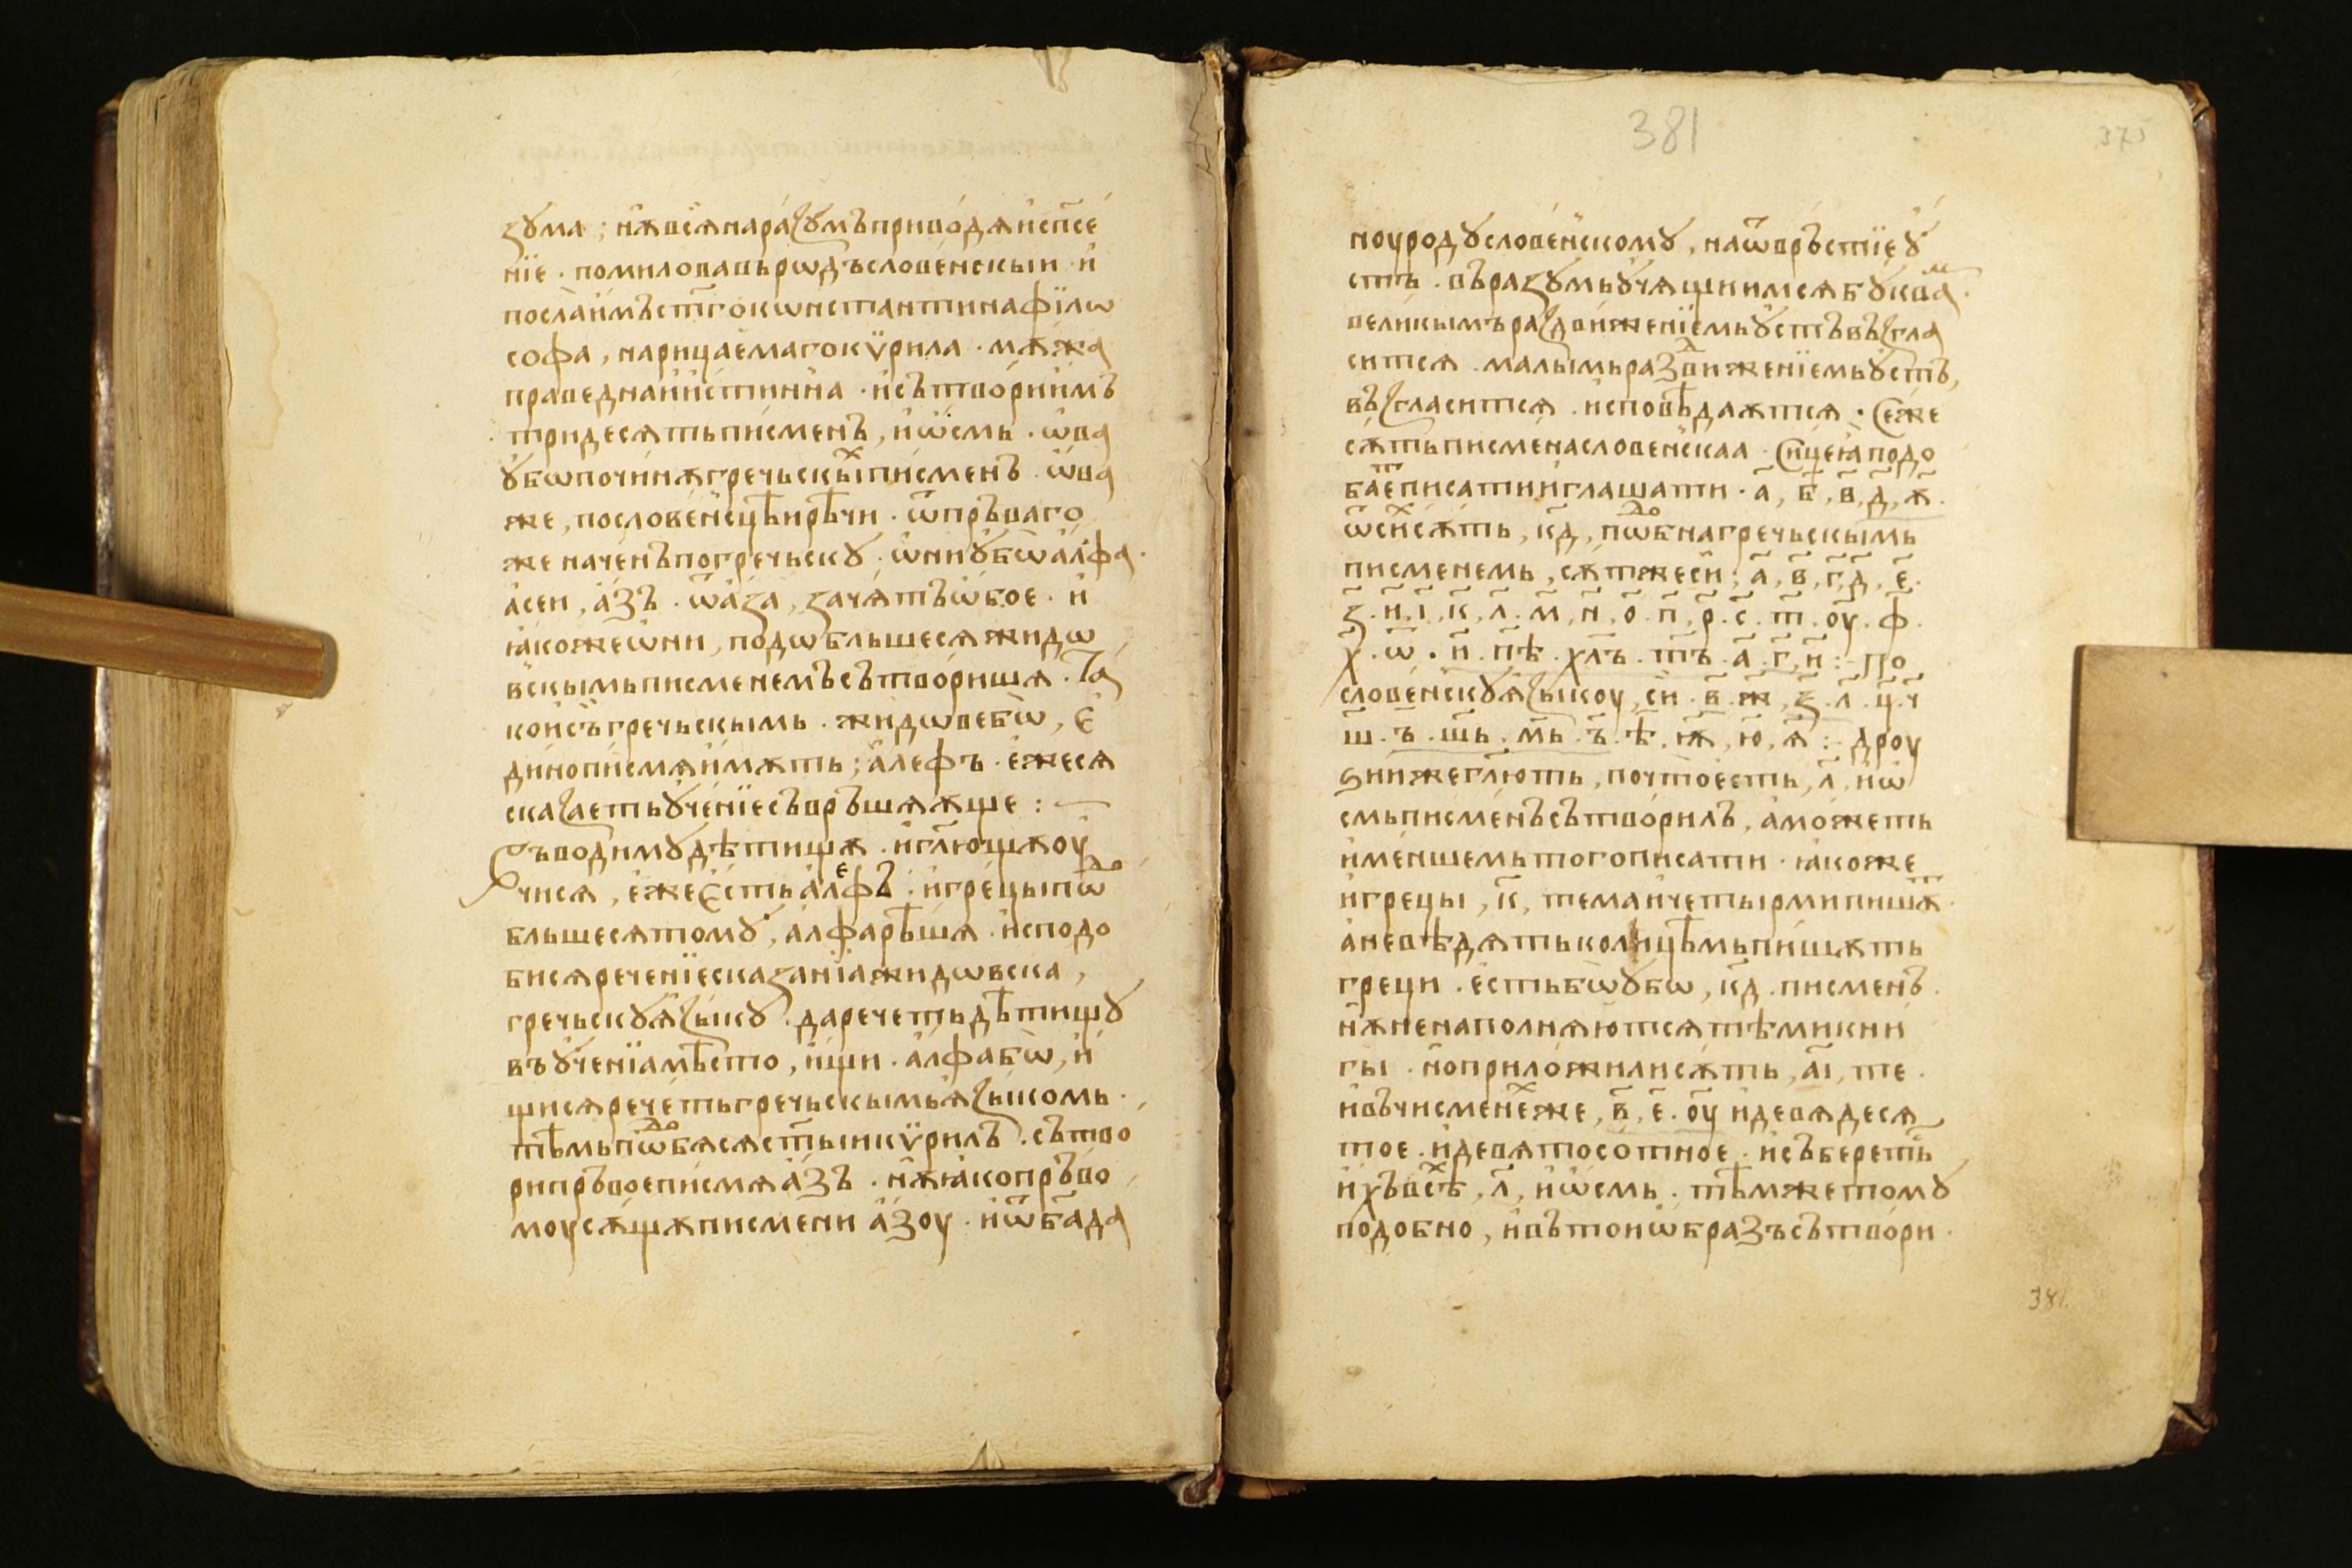 ꙁꙋма; нѫвсѧнаразꙋмъприводѧиспⷭ҇е
нїе · помиловавърѡдъсловенскыи · и
посла имъ ст҃гокѡнстантинафїлѡ
софа, нарицаемагокѵрила · мѫжа
праведнаиистинна · исътвориимъ
тридесѧтьписменъ, иѡсмь · ѡва
ꙋбѡпочинꙋгречьскыⷯписменъ · ѡва
же, пословенсцѣирѣчи · ѿпръваго
женаченъпогречьскꙋ · ѡниꙋбѡалфа ·
асеи, азъ · ѿаꙁа, ꙁачѧтъѡбое · и
ꙗкожеѡни, подѡбльшесѧжидѡ
вскымьписменемъсътворишѧ · Та
коисъгречьскымь · жидѡвебѡ, е
динописмѧимѫть; алефъ · ежесѧ
сказаетьꙋченїесъвръшѧѫще :—
Въводимꙋдѣтищѫ · игл҃ющѫоу
чисѧ, ежеестьалефъ · игрецыпѡⷣ
бльшесѧтомꙋ, алфарѣшѧ · исподо
бисѧреченїесказанїажидѡвска,
гречьскꙋѧзыкꙋ · даречетьдѣтищꙋ
въꙋченїамѣсто, ищи · алфабѡ, и
щисѧречетьгречьскымьѧзыкомь ·
тѣмьпѡⷣбѧсѧст҃ыикѵрилъ · сътво
рипръвоеписмѧазъ · нѫꙗкопръво
моусѫщѫписмени азоу · иѿб҃ада
381
375
ноуродꙋсловенскомꙋ, наѿвръстїеꙋ
стъ · въразꙋмьꙋчѧщиимсѧбꙋкваⷨ ·
великымъраздвиженїемьꙋстъвъзгла
ситсѧ · малымьраздвиженїемьꙋстъ,
възгласитсѧ · исповѣдаѫтсѧ · Сеже
сѫтьписменасловенскаа · Сицеꙗподо
баетписатииглашати · а҃, б҃, в҃, д҃, ѫ҃ ·
ѿсиⷯсѫть, кд҃, пѡⷣбнагречьскымь
писменемь, сѫтжеси; а҃, в҃, г҃, д҃, е҃ ·
ꙁ҃ · и҃, і҃, к҃, л҃ · м҃, н҃, о҃ · п҃, р҃ · с҃ · т҃ · оу҃ · ф҃ ·
х҃ · ѡ҃ · н҃ · пѣ҃ · хлъ҃ · тъ҃ · а҃ · г҃, н҃ :- По
словенскꙋѧзыкоу, си · б҃ · ж҃, ꙁ҃ · л҃ · ц҃ · ч҃
ш҃ · ъ҃ · шь҃ · мь҃ · ъ҃ · ѣ҃, ѭ҃, ю҃, ѧ҃ :- Дроу
ѕиижегл҃ють, почтоесть, л҃, иѡ
смьписменъсътворилъ, аможеть
именшемьтогописати · ꙗкоже
игрецы, к҃, темаичетырмипишѫт ·
аневѣдѧтьколицѣмьпишѫть
греци · естьбѡꙋбѡ, кд҃ · писменъ ·
нѫненаполнѧютсѧтѣмикни
гы · ноприложилисѫть, аі҃, те ·
ивъчисменеⷯже, в҃, е҃ · оу идевѧдесѧ
тое · идевѧтосотное · исъберетьⷭ
ихъвсѣⷯ, л҃, иѡсмь · тѣмжетомꙋ
подобно, ивътоиѡбразъсътвори ·
381